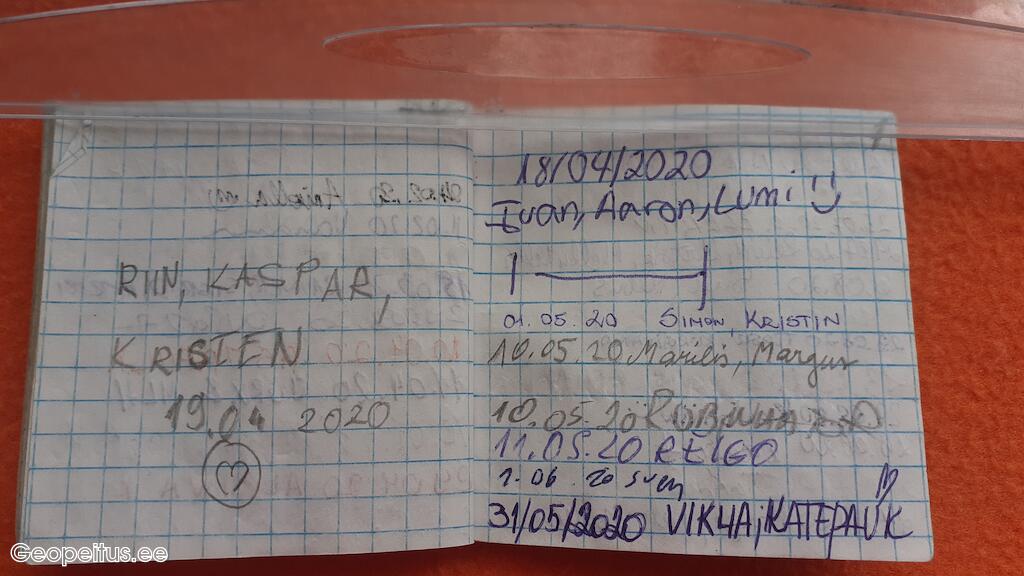 RIIN, KASPAR,
KRISTEN
19.04 2020
18/04/2020
Ivan, Aaron, Lumi
01.05.20 SIMON, KRISTIN
10.05.20 Marilis, Margus
10.05.20
11.05.20 REIGO
1.06 20 Sven
31/05/2020
Geopeitus.ee